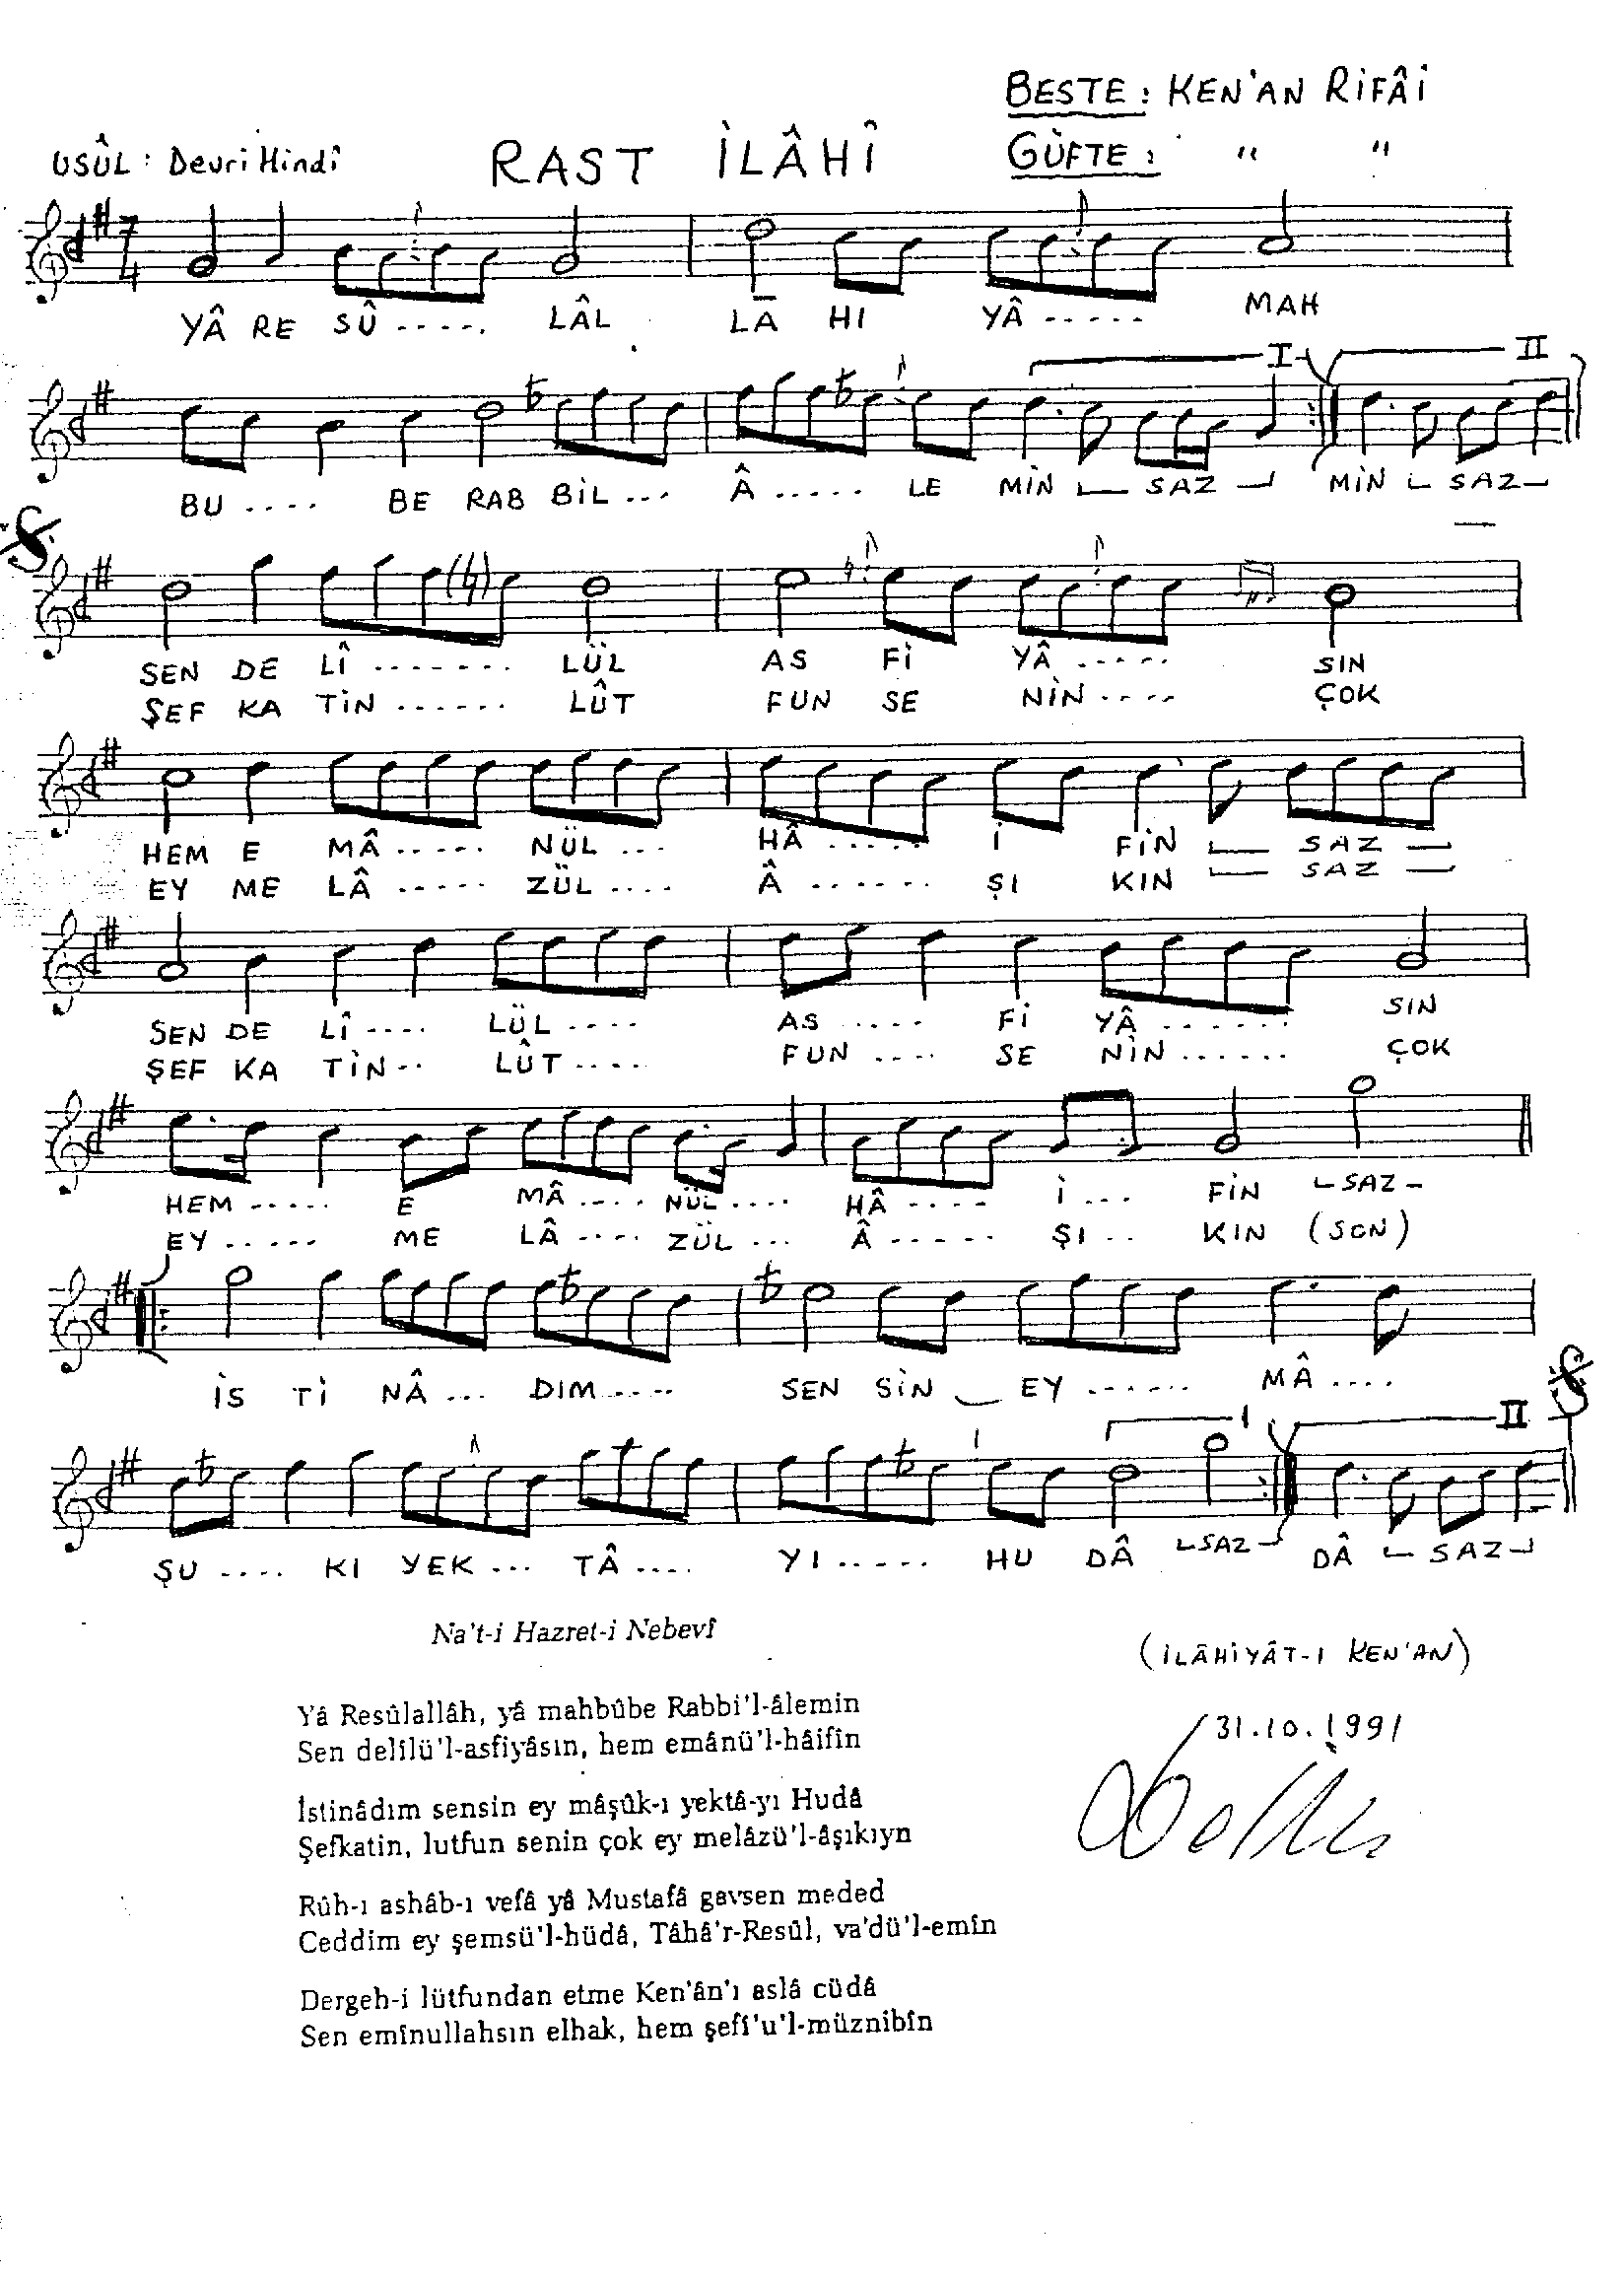 BESTE: KEN'AN RİFÂİ
USÛL: Devri Hindî RAST İLÂHÎ GÜFTE: " "
7/4
YÂ RE SÛ ----- LÂL LÂ HI YÂ ----- MAH
I II
BU ---- BE RAB BİL --- Â ----- LE MİN SAZ MİN SAZ
SEN DE LÎ ------- LÜL AS Fİ YÂ ----- SIN
ŞEF KA TİN ------ LÛT FUN SE NİN ---- ÇOK
HEM E MÂ ----- NÜL --- HÂ ----- İ FİN SAZ
EY ME LÂ ----- ZÜL ---- Â ------ ŞI KIN SAZ
SEN DE LÎ ---- LÜL ---- AS ----- Fİ YÂ ------ SIN
ŞEF KA TİN -- LÛT ---- FUN ---- SE NİN ------ ÇOK
HEM ----- E MÂ ---- NÜL ---- HÂ ---- İ --- FİN SAZ
EY ----- ME LÂ ---- ZÜL --- Â ----- ŞI -- KIN (SON)
İS Tİ NÂ --- DIM ---- SEN SİN EY ------ MÂ ----
I II
ŞU ---- KI YEK --- TÂ ---- YI ----- HU DÂ SAZ DÂ SAZ
Na't-i Hazret-i Nebevî
(İLÂHİYÂT-I KEN'AN)
Yâ Resûlallâh, yâ mahbûbe Rabbi'l-âlemin
31.10.1991
Sen delîlü'l-asfiyâsın, hem emânü'l-hâifîn
İstinâdım sensin ey mâşûk-ı yektâ-yı Hudâ
Şefkatin, lutfun senin çok ey melâzü'l-âşıkıyn
Rûh-ı ashâb-ı vefâ yâ Mustafâ gavsen meded
Ceddim ey şemsü'l-hüdâ, Tâhâ'r-Resûl, va'dü'l-emîn
Dergeh-i lütfundan etme Ken'ân'ı aslâ cüdâ
Sen emînullahsın elhak, hem şefî'u'l-müznibîn